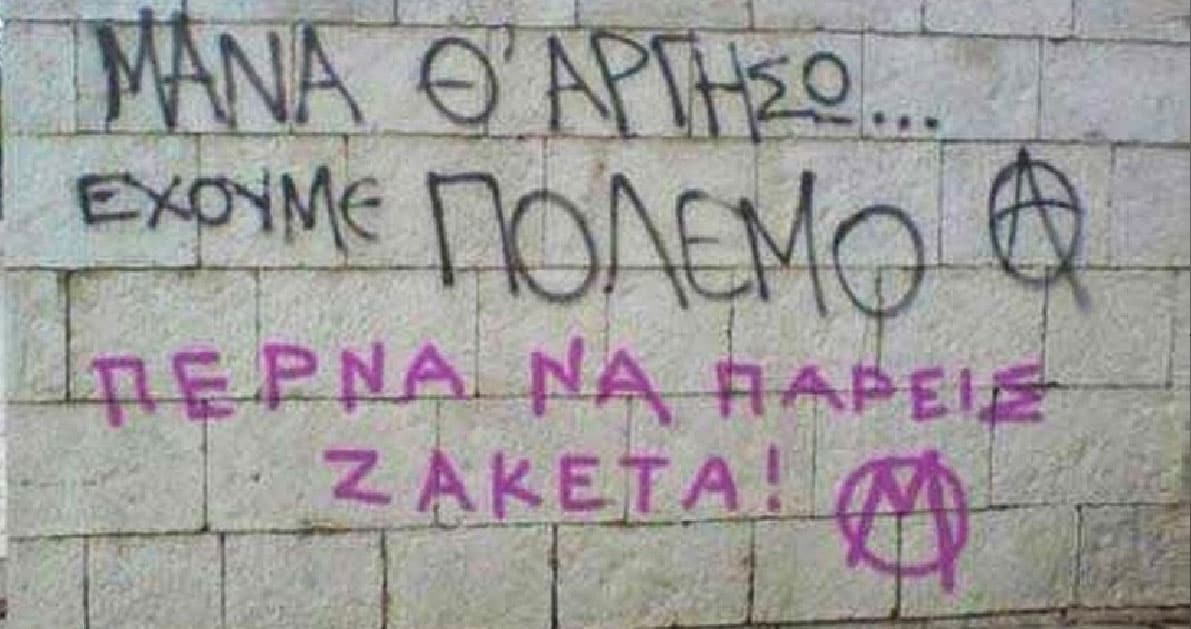 ΜΑΝΑ Θ' ΑΡΓΗΣΩ...
ΕΧΟΥΜΕ ΠΟΛΕΜΟ Ⓐ
ΠΕΡΝΑ ΝΑ ΠΑΡΕΙΣ
ΖΑΚΕΤΑ! Μ